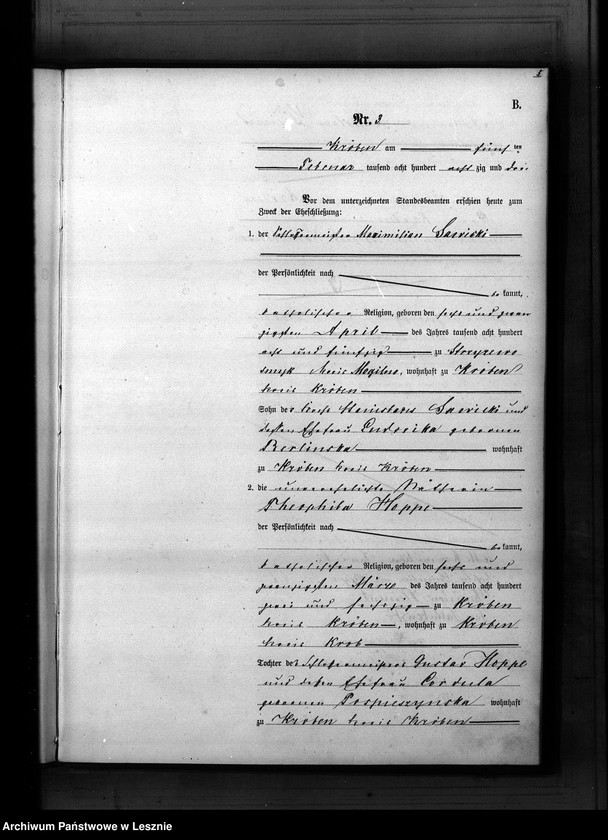 B.
Nr. 3
Kröben am fünf ten
Februar tausend acht hundert acht zig und drei
Vor dem unterzeichneten Standesbeamten erschien heute zum
Zweck der Eheschließung:
1. der Maximilian Sawicki
der Persönlichkeit nach
be kannt,
katholischer Religion, geboren den sechs und zwan
zigsten April des Jahres tausend acht hundert
acht und fünfzig zu
Kreis Mogilno, wohnhaft zu Kröben
Kreis Kröben
Sohn des Stanislaus Sawicki und
dessen Ehefrau Ludovika geborenen
Berlinska wohnhaft
zu Kröben Kreis Kröben
2. die unverehelichte Nätherin
Theophila Hoppe
der Persönlichkeit nach
be kannt,
katholischer Religion, geboren den sechs und
zwanzigsten März des Jahres tausend acht hundert
zwei und sechszig zu Kröben
Kreis Kröben, wohnhaft zu Kröben
Kreis
Tochter des Gustav Hoppe
und dessen Ehefrau Cordula
geborenen Pospieszynska wohnhaft
zu Kröben Kreis Kröben
Archiwum Państwowe w Lesznie